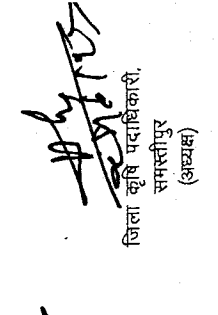 जिला कृषि पदाधिकारी,
समस्तीपुर
(अध्यक्ष)